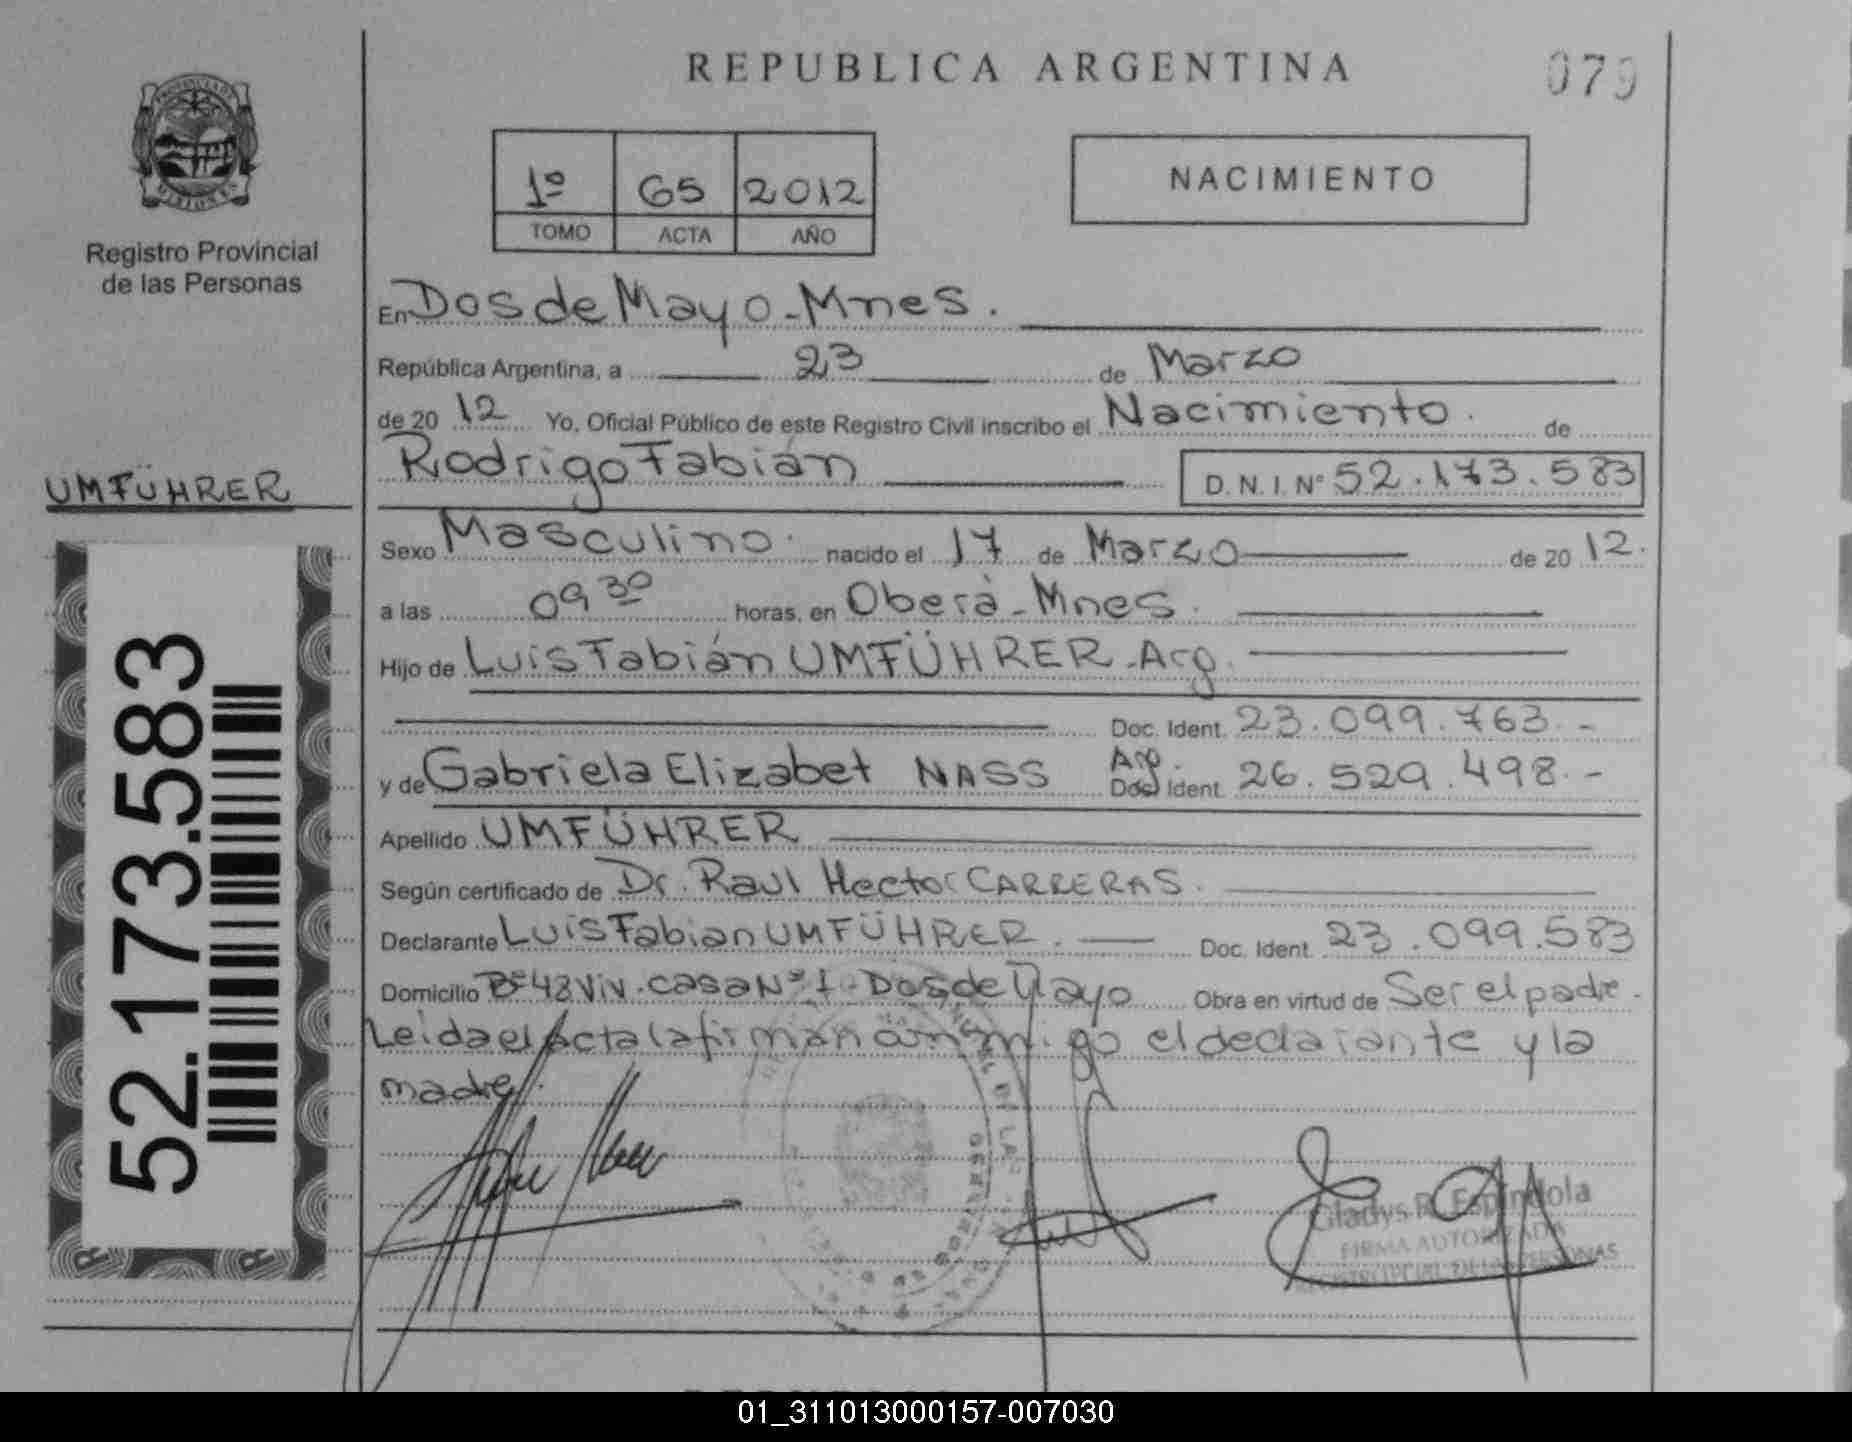 REPUBLICA ARGENTINA
079
Registro Provincial
de las Personas
1º 65 2012
TOMO ACTA AÑO
NACIMIENTO
En Dos de Mayo - Mnes.
República Argentina, a 23 de Marzo
de 20 12 Yo, Oficial Público de este Registro Civil inscribo el Nacimiento. de
Rodrigo Fabián D.N.I. Nº 52.173.583
UMFÜHRER
Sexo Masculino. nacido el 17 de Marzo de 20 12.
a las 09 30 horas, en Oberá - Mnes.
Hijo de Luis Fabián UMFÜHRER - Arg.
Doc. Ident. 23.099.763.-
y de Gabriela Elizabet NASS Arg. Doc. Ident. 26.529.498.-
Apellido UMFÜHRER
Según certificado de Dr. Raul Hector CARRERAS.
Declarante Luis Fabian UMFÜHRER. Doc. Ident. 23.099.583
Domicilio Bº 48 Viv. casa Nº 1 - Dos de Mayo Obra en virtud de Ser el padre.
Leida el Acta la firman conmigo el declarante y la
madre.
52.173.583
Gladys R. Espíndola
FIRMA AUTORIZADA
REGISTRO PCIAL. DE LAS PERSONAS
01_311013000157-007030